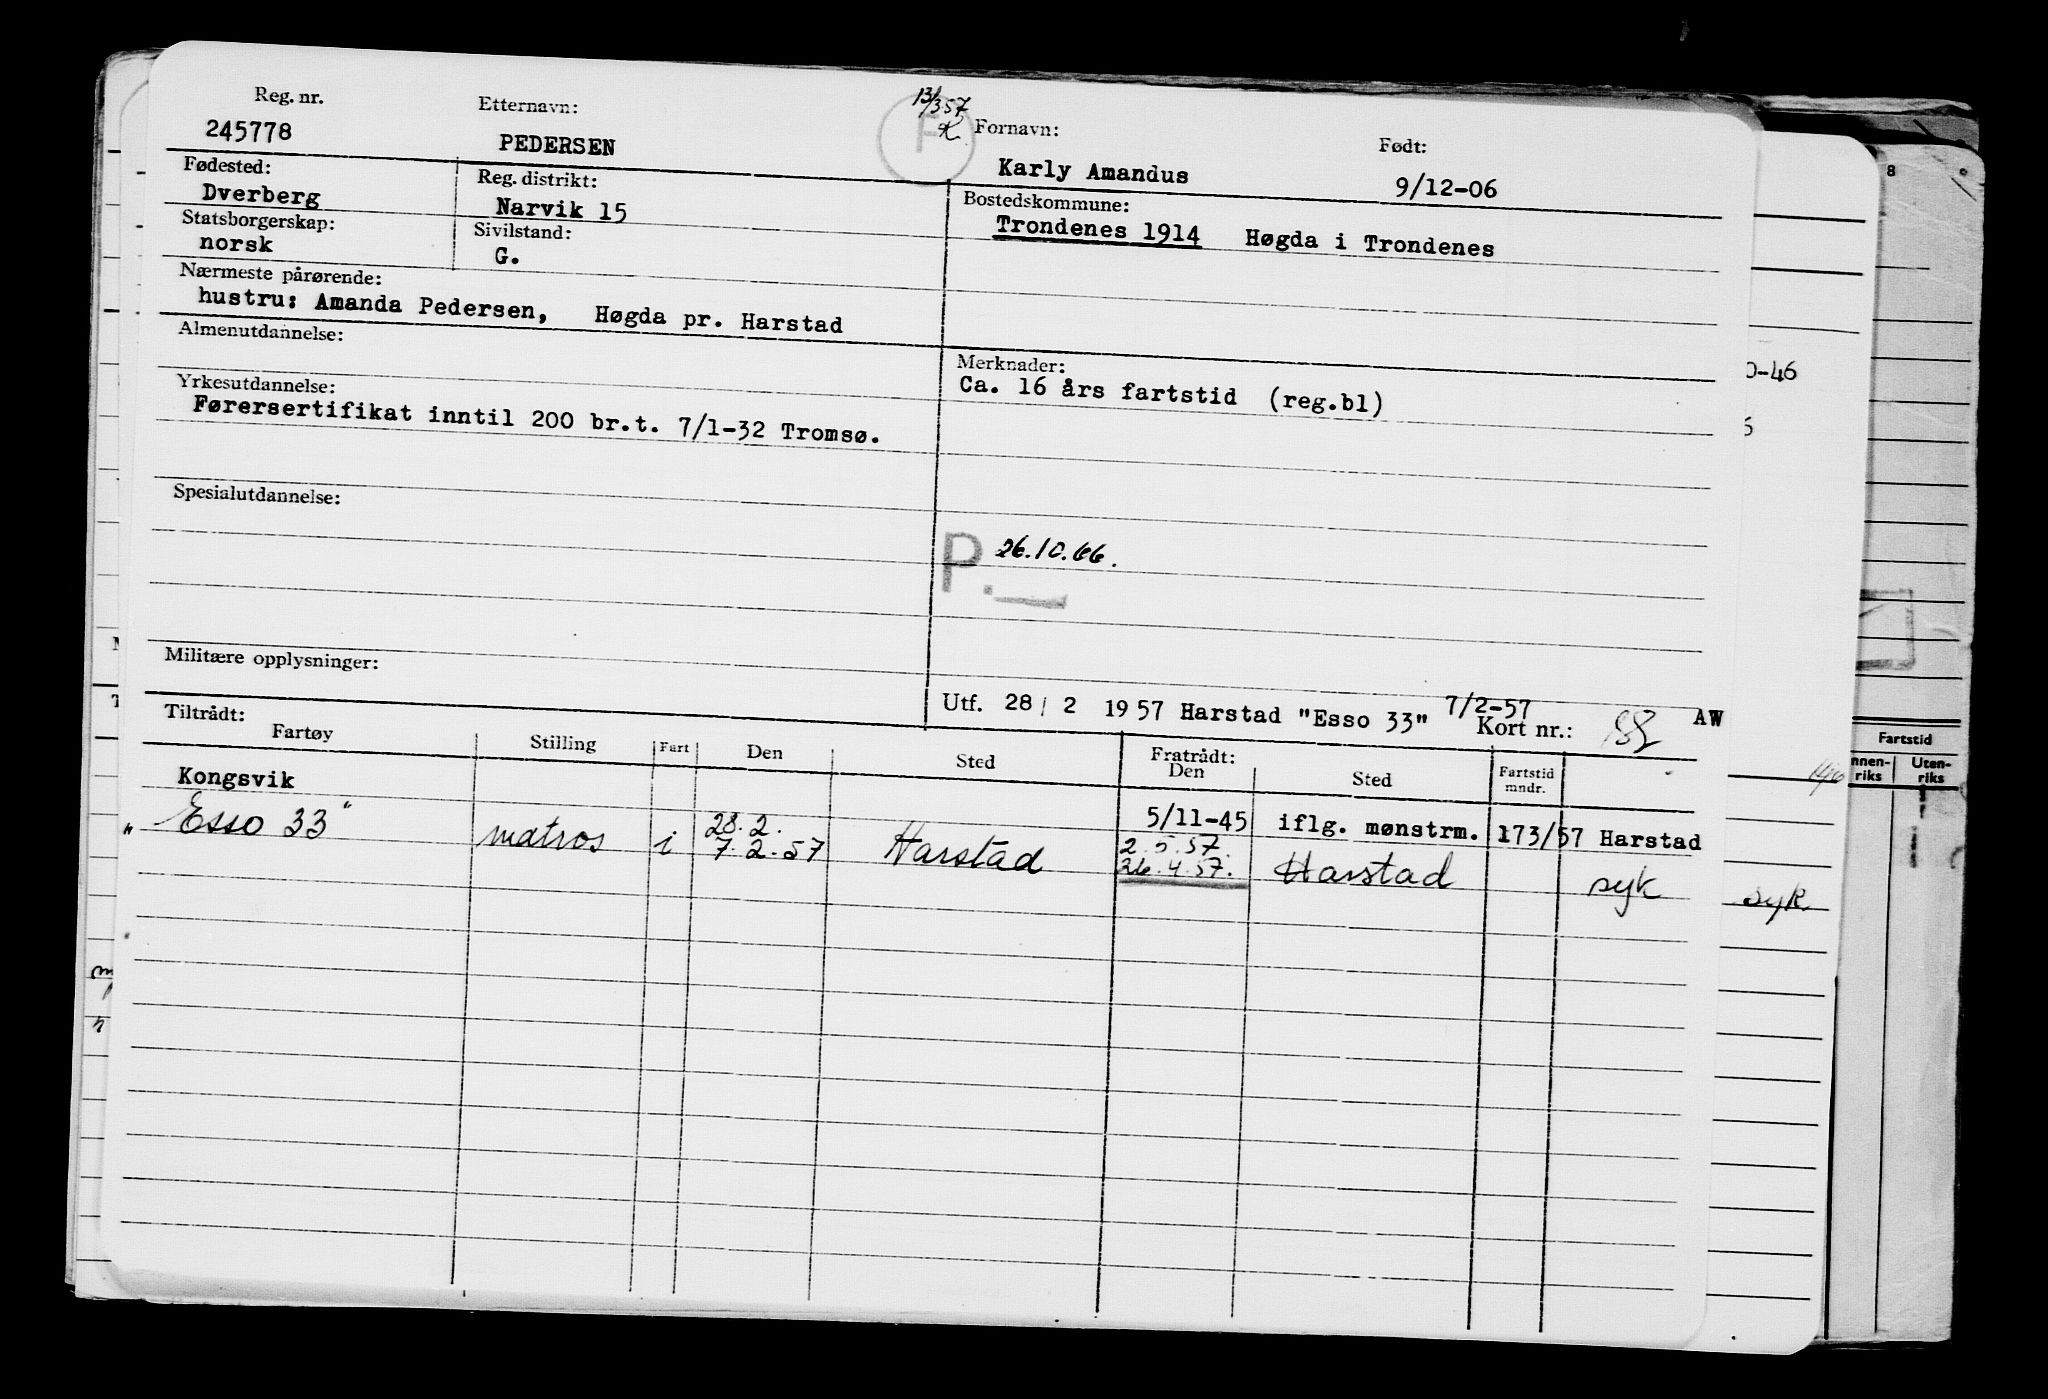 Reg. nr. Etternavn: 13/3 57 Fornavn: Født:
245778 PEDERSEN F Karly Amandus 9/12-06
Fødested: Reg. distrikt: Bostedskommune:
Dverberg Narvik 15 Trondenes 1914 Høgda i Trondenes
Statsborgerskap: Sivilstand:
norsk G.
Nærmeste pårørende:
hustru: Amanda Pedersen, Høgda pr. Harstad
Almenutdannelse: Merknader:
Ca. 16 års fartstid (reg.bl)
Yrkesutdannelse:
Førersertifikat inntil 200 br.t. 7/1-32 Tromsø.
Spesialutdannelse:
P. 26.10.66.
Militære opplysninger:
Utf. 28 / 2 19 57 Harstad "Esso 33" 7/2-57 Kort nr.: AW
Tiltrådt: Fratrådt:
Fartøy Stilling Fart Den Sted Den Sted Fartstid mndr.
Kongsvik 5/11-45 iflg. mønstrm. 173/57 Harstad
"Esso 33" matros i 28.2. 7.2.57 Harstad 2.5.57. 26.4.57. Harstad syk
8
0-46
Fartstid
nnen-riks Uten-riks
syk